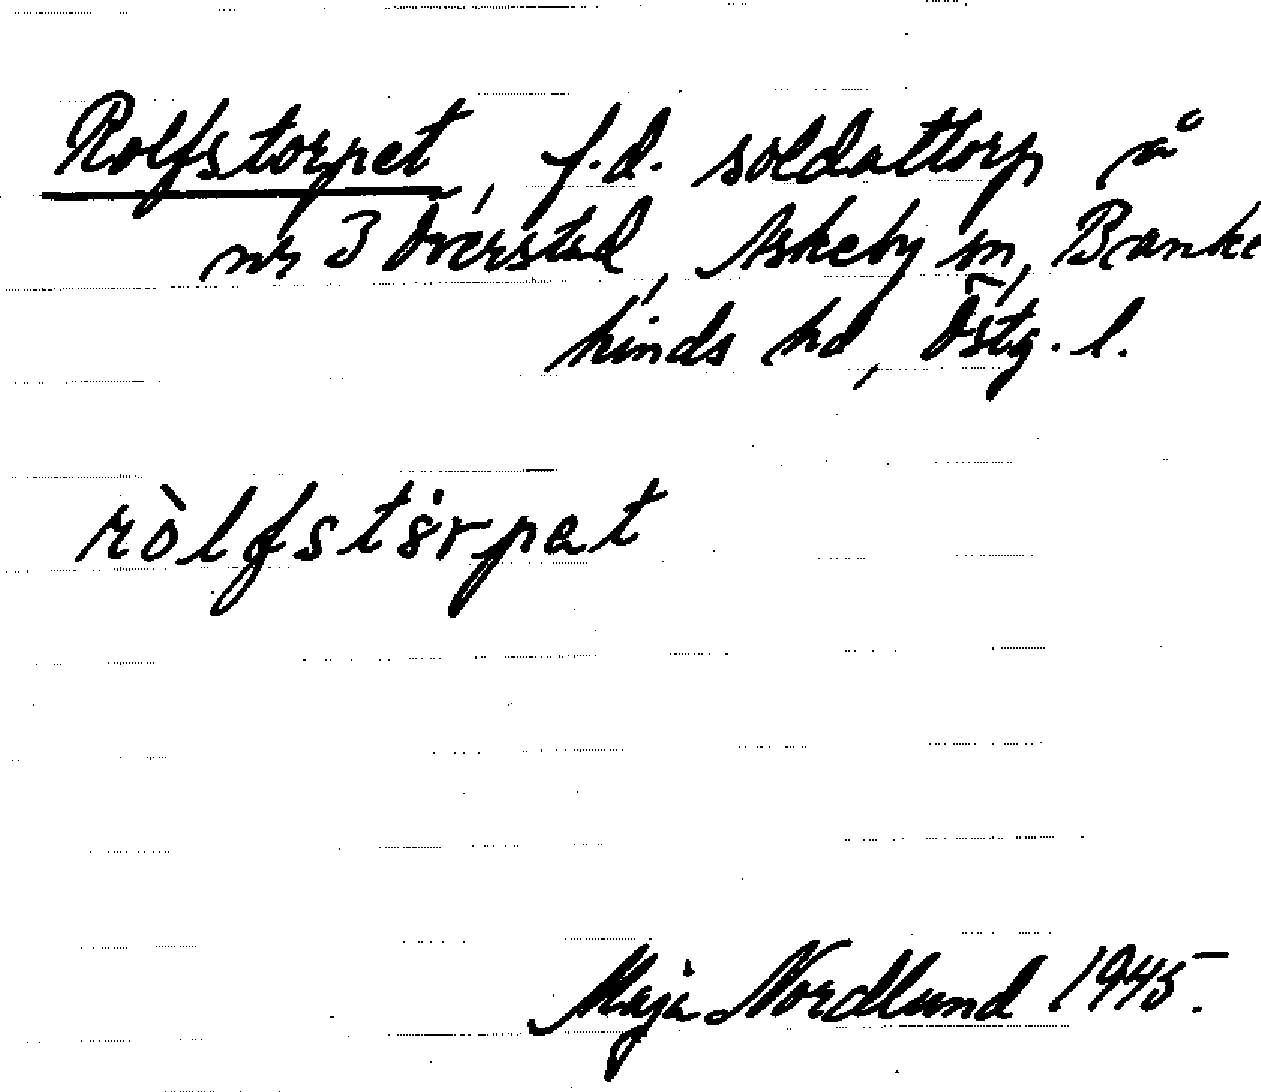 Rolfstorpet, f.d. soldattorp å
nr 3 Överstad, Askeby sn, Banke
kinds hd, Östg. l.
ròlfstörpat
Maja Nordlund 1945.